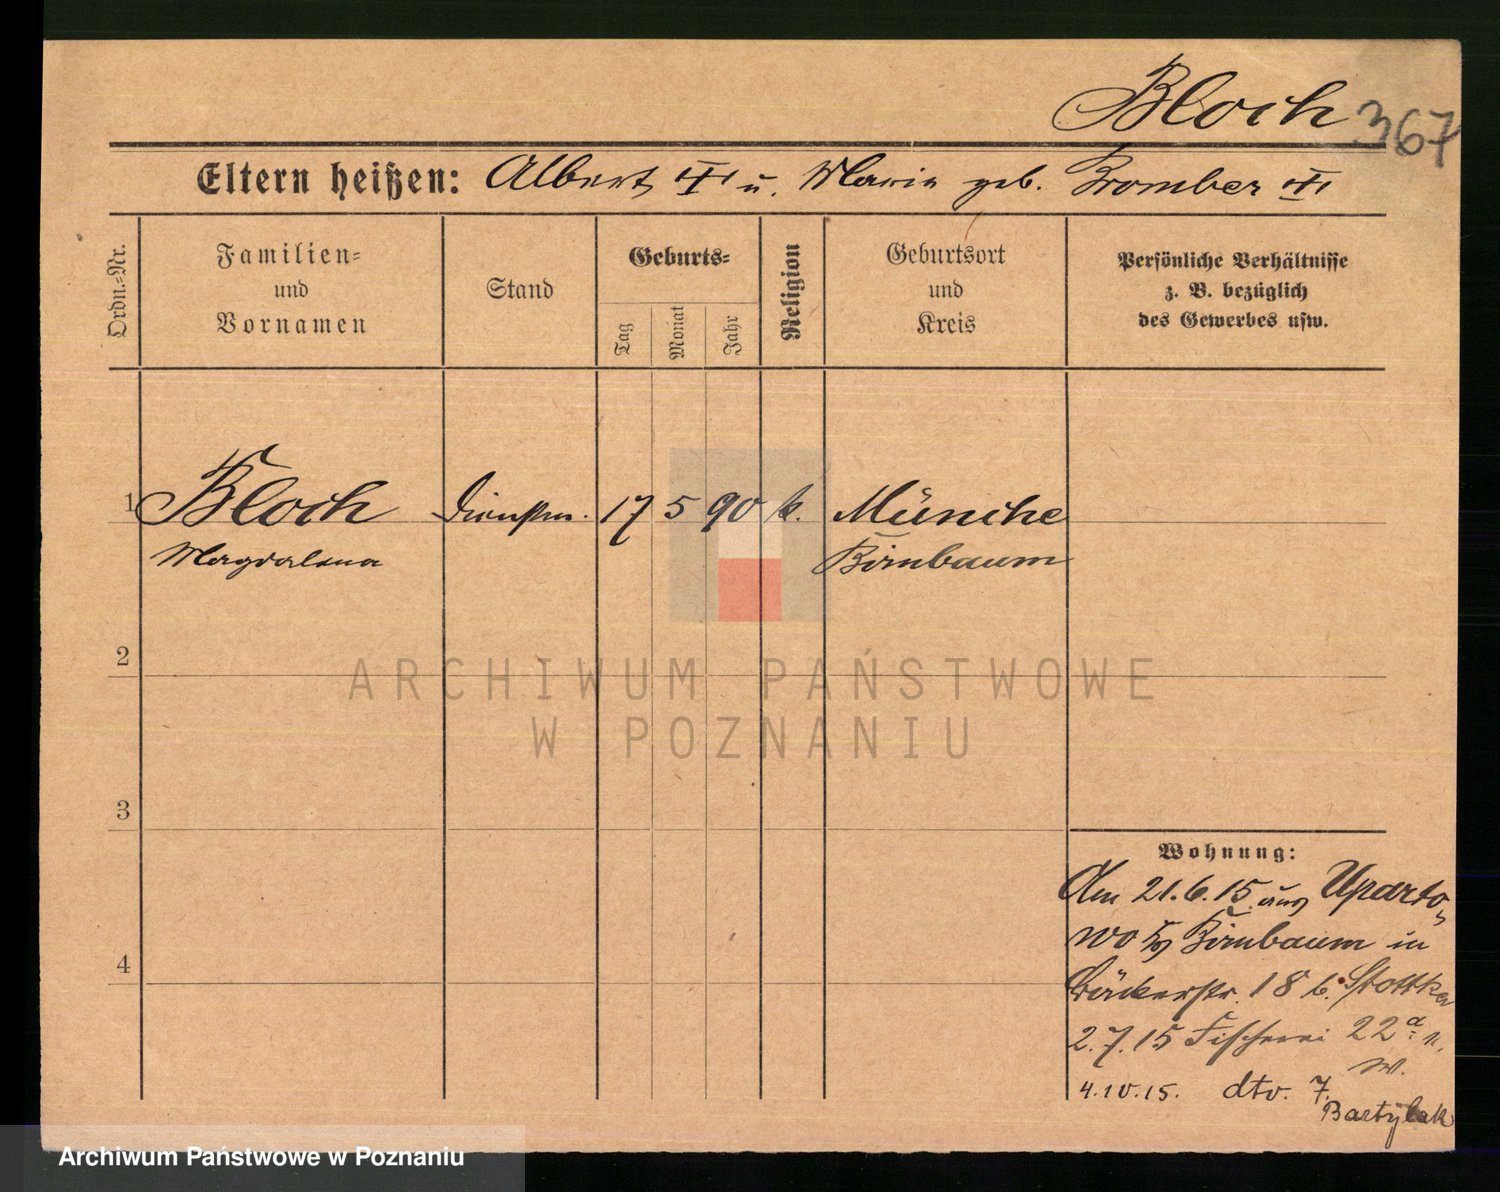 Bloch 367
Eltern heißen: Albert u. Marie geb. Bromber
Ordn.=Nr.
Familien=
und
Vornamen
Stand
Geburts=
Tag
Monat
Jahr
Religion
Geburtsort
und
Kreis
Persönliche Verhältnisse
z. B. bezüglich
des Gewerbes usw.
1 Bloch Dienstm. 17 5 90 k. Münche
Magdalena Birnbaum
2
ARCHIWUM PAŃSTWOWE
W POZNANIU
3
4
Wohnung:
Am 21.6.15 aus Uparto=
wo Birnbaum in
Bäckerstr. 18 b. Stottka
2.7.15 Fischerei 22a
4.10.15. dto. 7.
Bartylak
Archiwum Państwowe w Poznaniu